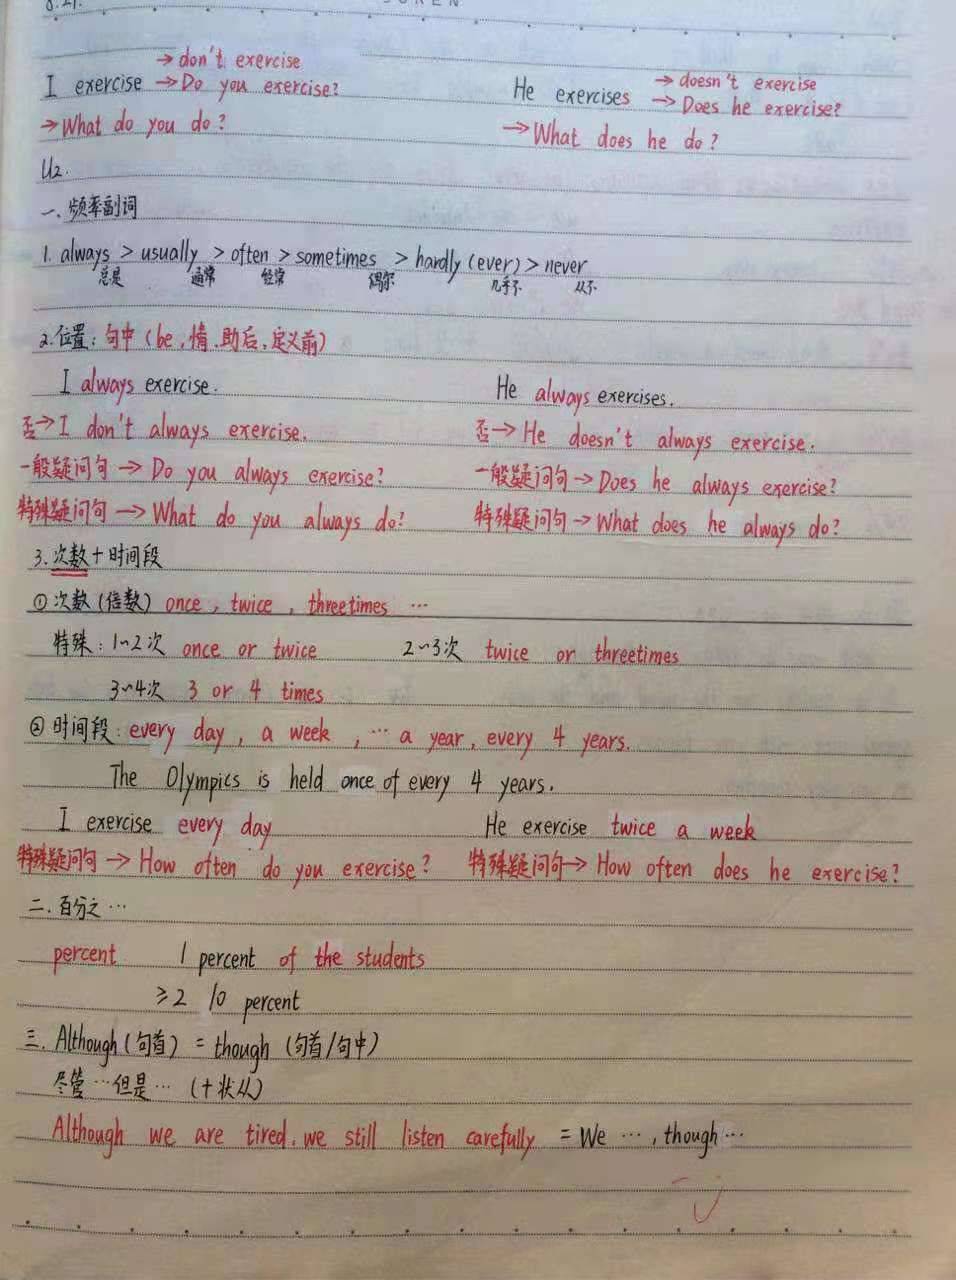 8.21.
→ don't exercise
I exercise → Do you exercise?
He exercises → doesn't exercise
→ Does he exercise?
→ What do you do?
→ What does he do?
U2.
一、频率副词
1. always > usually > often > sometimes > hardly (ever) > never
总是 通常 经常 偶尔 几乎不 从不
2.位置：句中（be，情、助后、定义前）
I always exercise. He always exercises.
否→ I don't always exercise. 否→ He doesn't always exercise.
一般疑问句 → Do you always exercise? 一般疑问句 → Does he always exercise?
特殊疑问句 → What do you always do? 特殊疑问句 → What does he always do?
3.次数+时间段
①次数(倍数) once, twice, threetimes …
特殊：1~2次 once or twice 2~3次 twice or threetimes
3~4次 3 or 4 times
②时间段：every day, a week, … a year, every 4 years.
The Olympics is held once of every 4 years.
I exercise every day He exercise twice a week
特殊疑问句 → How often do you exercise? 特殊疑问句→ How often does he exercise?
二.百分之…
percent 1 percent of the students
≥2 10 percent
三. Although(句首) = though (句首/句中)
尽管…但是… (+状从)
Although we are tired, we still listen carefully = We …, though…